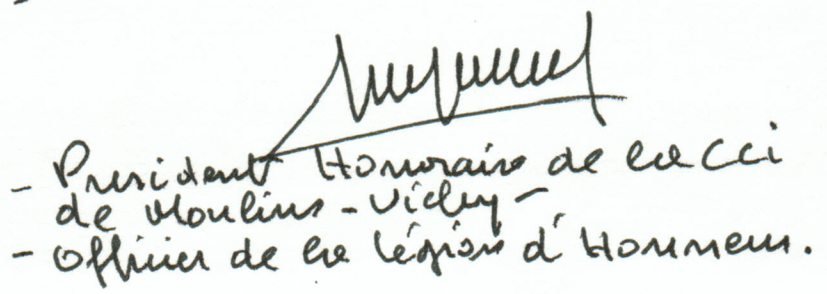 - Président Honoraire de la CCi
de Moulins - Vichy -
- Officier de la légion d'Honneur.